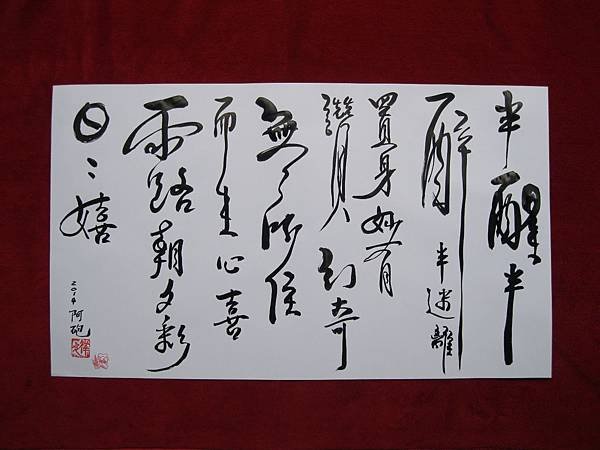 半醒半
醉半迷離
置身妙有
讚幻奇
無所住
而生心喜
露朝夕彩
日々嬉
2014 阿砲